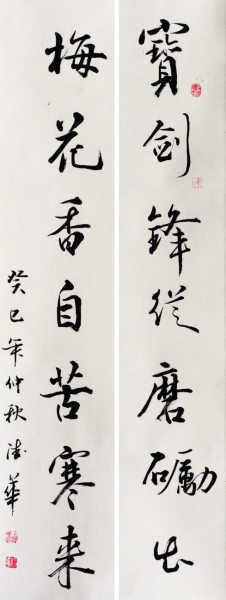 寶劍鋒從磨礪出
梅花香自苦寒來
癸巳年仲秋德華